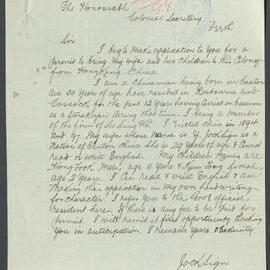 The Honourable
Colonial Secretary
Perth
Sir
I beg to make application to You for a
permit to bring My wife and two Children to this Colony
from HongKong China.
I am a Chinaman being born in Canton
Am 30 Years of age have resided in Roebourne and
Cossack for the past 12 Years having carried on business
as a Storekeeper during that time. I being a Member
of the firm of
I arrived China in 1894
and My wife whose name is Jock Sign is a
Native of Canton China she is 29 Years of age & Cannot
read or write English. My Children Names are
Hong Fook, Male, age 11 Years &
age 2 Years. I can read & write English & am
Making this application in My own handwriting
for character. I refer You to the Govt Official
resident here. If there is any fee to be paid for
permit. I will remit it first opportunity. thanking
You in anticipation. I Remain Yours Obediently
Jock Sign